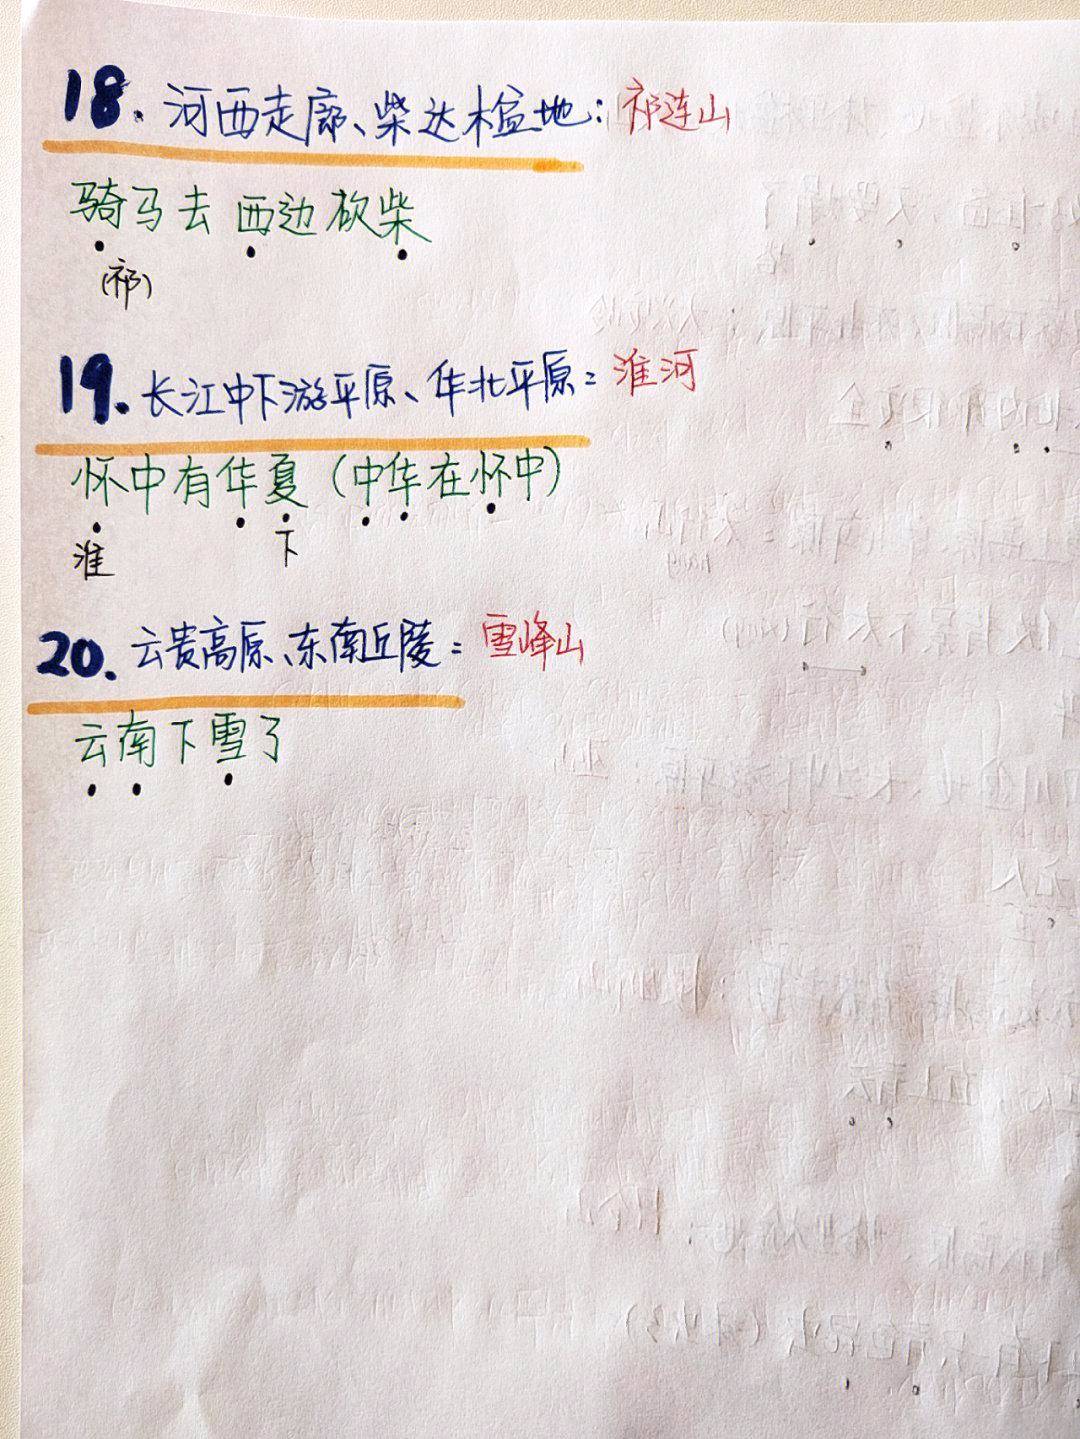 18. 河西走廊、柴达木盆地：祁连山
骑马去西边砍柴
(祁)
19. 长江中下游平原、华北平原：淮河
怀中有华夏（中华在怀中）
淮 下
20. 云贵高原、东南丘陵：雪峰山
云南下雪了